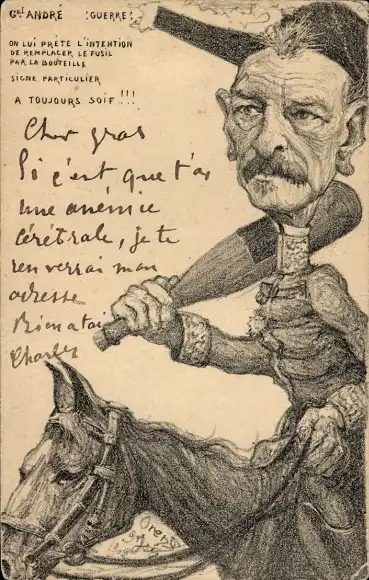 Gal ANDRÉ (GUERRE)
ON LUI PRÊTE L'INTENTION
DE REMPLACER LE FUSIL
PAR LA BOUTEILLE
SIGNE PARTICULIER
A TOUJOURS SOIF !!!
Cher gros
Si c'est que t'as
une anémie
cérébrale, je te
renverrai mon
adresse
Bien à toi
Charles